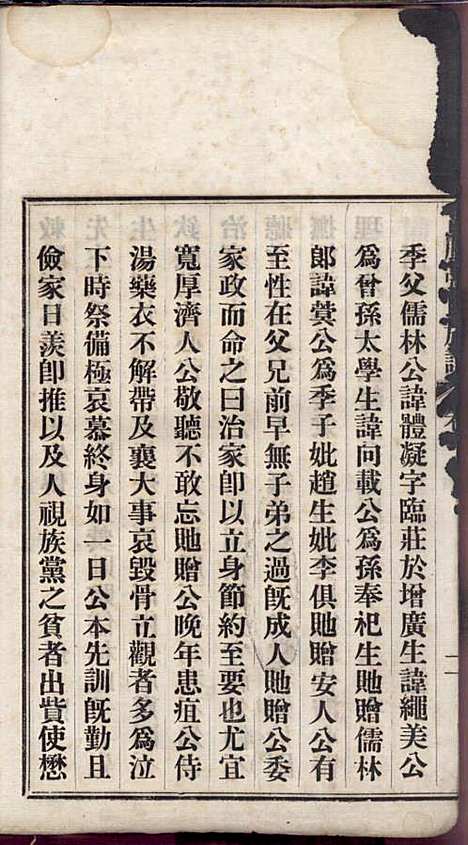 季父儒林公諱體凝字臨莊於增廣生諱繩美公
爲曾孫太學生諱向載公爲孫奉祀生貤贈儒林
郎諱蓂公爲季子妣趙生妣李俱貤贈安人公有
至性在父兄前早無子弟之過既成人貤贈公委
家政而命之曰治家卽以立身節約至要也尤宜
寬厚濟人公敬聽不敢忘貤贈公晚年患疽公侍
湯藥衣不解帶及襄大事哀毀骨立觀者多爲泣
下時祭備極哀慕終身如一日公本先訓既勤且
儉家日羨卽推以及人視族黨之貧者出貲使懋